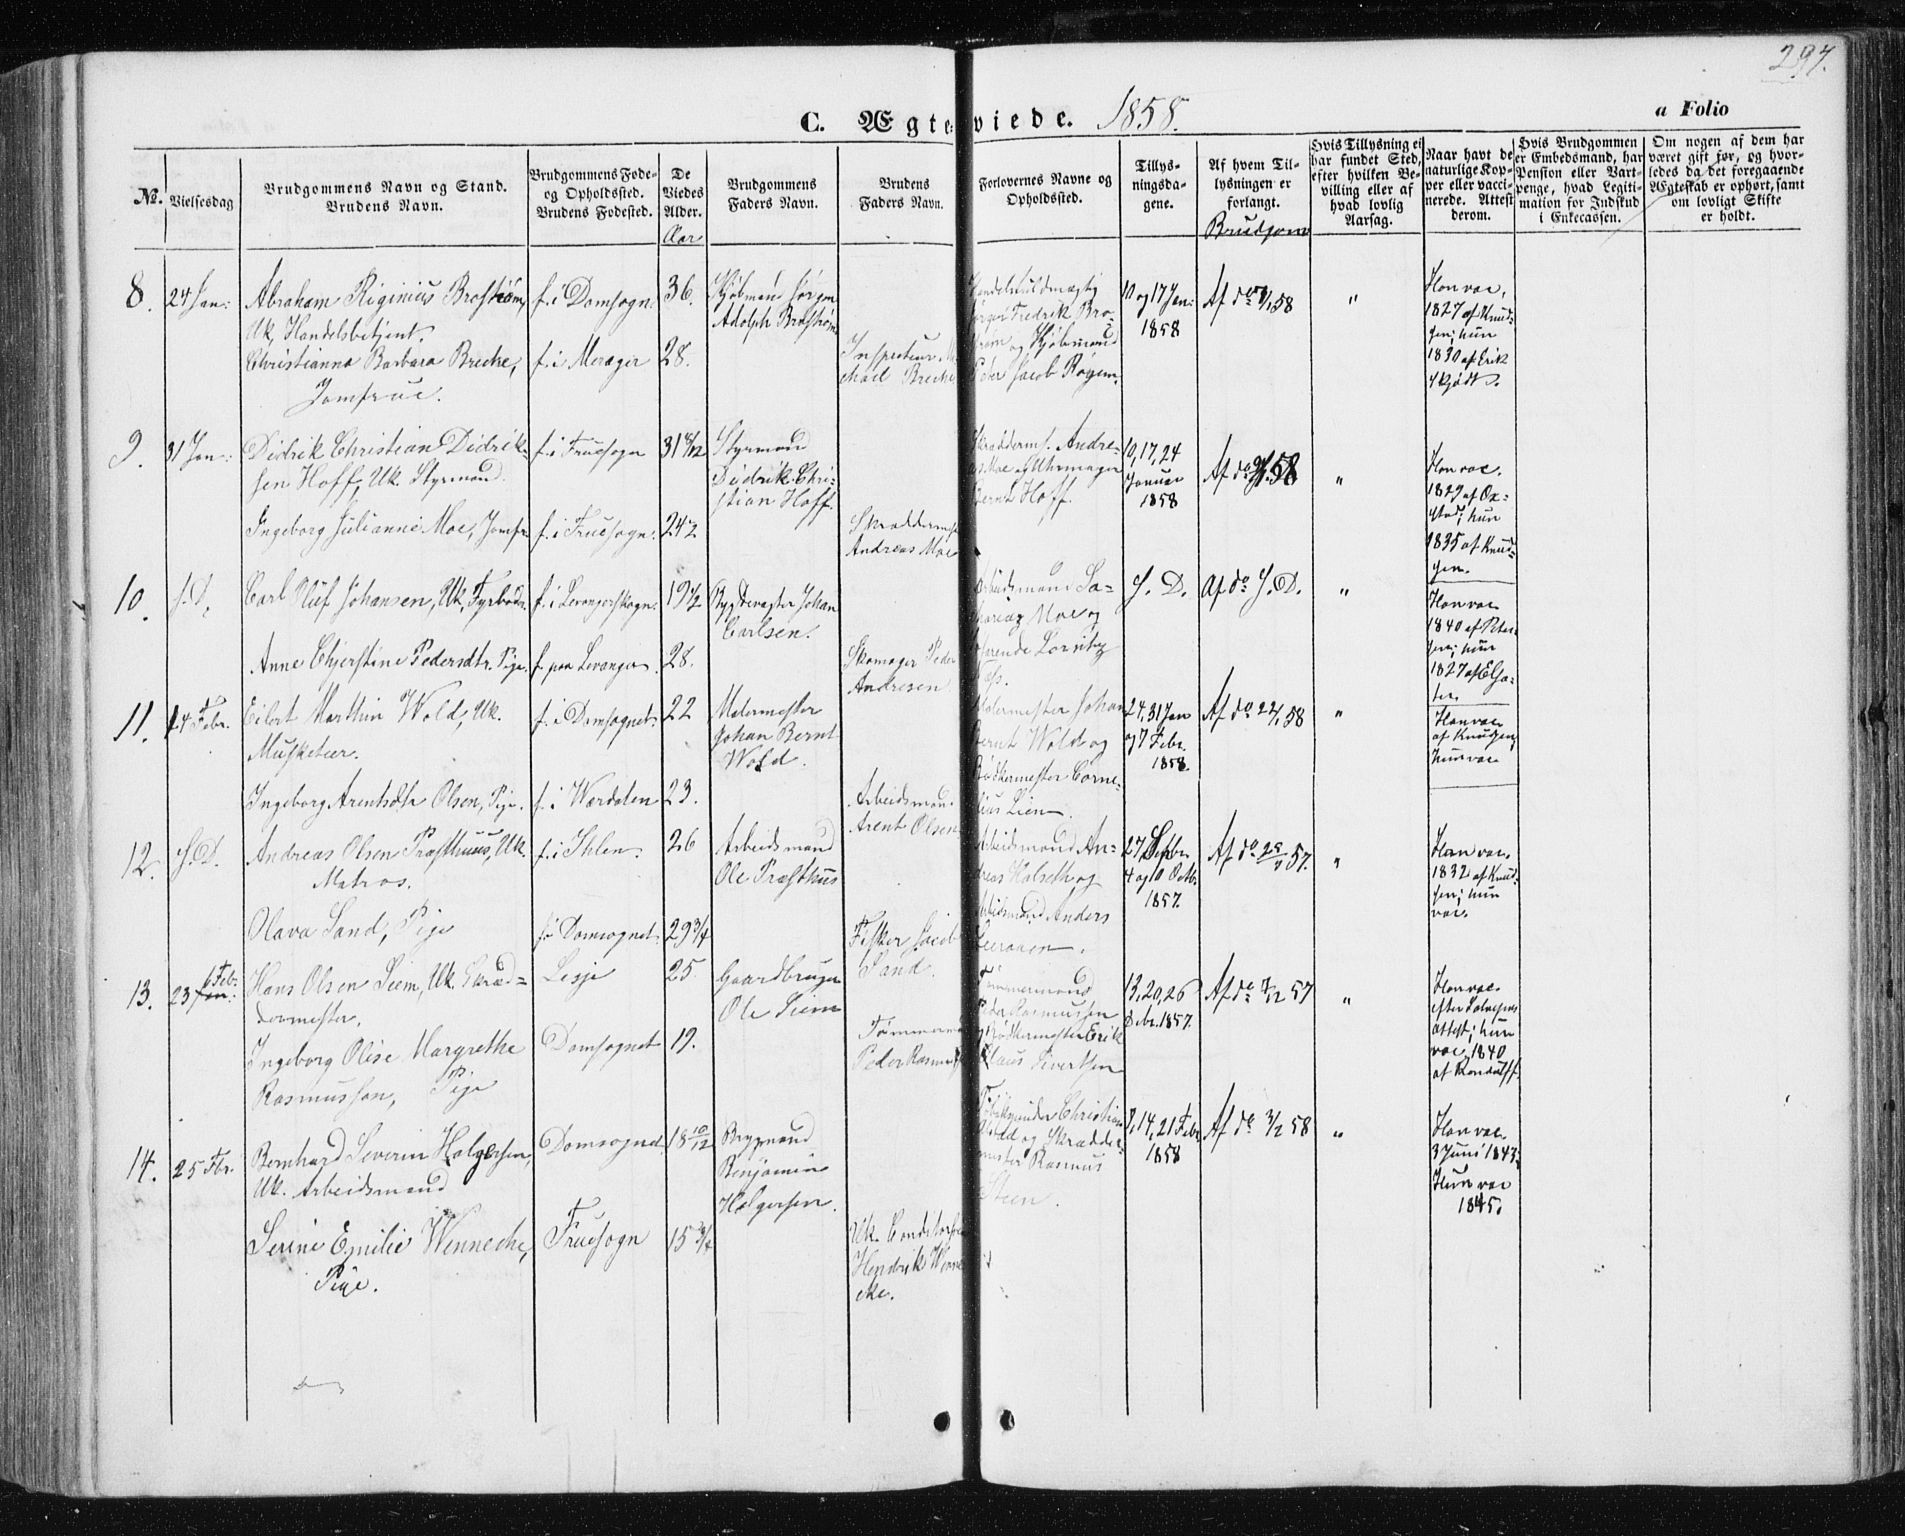 297.
C. Ægteviede. 1858.
a Folio
No.
Vielsesdag
Brudgommens Navn og Stand.
Brudens Navn.
Brudgommens Føde-
og Opholdssted.
Brudens Fødested.
De
Viedes
Alder.
Aar
Brudgommens
Faders Navn.
Brudens
Faders Navn.
Forlovernes Navne og
Opholdssted.
Tillys-
ningsda-
gene.
Af hvem Til-
lysningen er
forlangt.
Brudgom
Hvis Tillysning ei
har fundet Sted,
efter hvilken Be-
villing eller af
hvad lovlig
Aarsag.
Naar havt de
naturlige Kop-
per eller vacci-
nerede. Attest
derom.
Hvis Brudgommen
er Embedsmand, har
Pension eller Vart-
penge, hvad Legiti-
mation for Indskud
i Enkecassen.
Om nogen af dem har
været gift før, og hvor-
ledes da det foregaaende
Ægteskab er ophørt, samt
om lovligt Skifte
er holdt.
8.
24 Jan:
Abraham Riginius Brostrøm,
Uk, Handelsbetjent.
Christianna Barbara Brecke,
Jomfrue.
f. i Domsogn.
f. i Merager
36.
28.
Kjøbmand Jørgen
Adolph Brostrøm
Inspecteur Mi-
chael Brecke
Handelsfuldmægtig
Jørgen Fredrik Bro-
strøm og Kjøbmand
Peder Jacob Røgem.
10 og 17 Jan:
1858
Af do 7/1 58
"
Han vac.
1827 af Knud-
sen; hun
1830 af Erik
Skjødt.
9.
31 Jan:
Didrik Christian Didrik-
sen Hoff, Uk. Styrmand.
Ingeborg Julianne Moe, Jomfr.
f. i Fruesogn
f. i Fruesogn.
31 8/12
24 1/2
Styrmand
Didrik Chri-
stian Hoff.
Skræddermest
Andreas Moe
Skrædderm. Andre-
as Moe Uhrmager
Bernt Hoff.
10, 17, 24
Januar
1858
Af do 9/1 58
"
Han vac.
1829 af Ox-
stad; hun
1835 af Knud-
sen.
10.
S. D.
Carl Oluf Johansen, Uk, Fyrbøder
Anne Chjerstine Pedersdtr. Pige.
f. i Levangerskogn.
f. paa Levanger.
19 1/2
28.
Johan
Carlsen.
Skomager Peder
Andresen
Arbeidsmand Za-
charias Moe og
Næss.
S. D.
Af do S. D.
"
Han vac
1840 af Peter-
sen; hun
1827 af
11.
14 Febr.
Eilert Marthin Wold, Uk.
Musketeer.
Ingeborg Arentsdtr Olsen, Pige.
f. i Domsognet.
f. i Værdalen
22
23.
Malermester
Johan Bernt
Wold.
Arbeidsmand
Arent Olsen
Malermester Johan
Bernt Wold og
Bødkermester Corne-
lius Lien.
24, 31 Jan
og 7 Febr.
1858.
Af do 22/1 58
"
Han vac
af Knudsen,
hun vac
12.
S. D.
Andreas Olsen Præsthuus, Uk.
Matros.
Olava Sand, Pige
f. i Ihlen.
f. i Domsognet.
26
29 3/4
Arbeidsmand
Ole Præsthus
Fisker Jacob
Sand.
Arbeidsmand An-
dreas Halseth og
Arbeidsmand Anders
27 Septbr.
4 og 10 Octbr.
1857.
Af do 25/9 57.
"
Han vac.
1832 af Knud-
sen; hun
vac.
13.
23 Febr.
Hans Olsen Siem, Uk. Skræd-
dermester.
Ingeborg Olise Margrethe
Rasmussen, Pige
Lesje
Domsognet
25.
19.
Gaardbruger
Ole Siem
Tømmermand
Peder Rasmussen
Tømmermand
Peder Rasmussen
og Bødkermester Erik
Claus Sivertsen
13, 20, 26
Debr. 1857.
Af do 7/12 57
"
Han vac
efter
Attest; hun
vac. 1840
af Rondulff.
14.
25 Fbr.
Bernhard Severin Holgersen,
Uk. Arbeidsmand
Serine Emilie Wennecke,
Pige.
Domsognet
Fruesogn
18 10/12
15 3/4
Brygmand
Benjamin
Holgersen.
Uk. Conditorsvend
Hendrik Wenne-
cke.
Christian
og Skrædder-
mester Rasmus
Steen.
7, 14, 21 Febr
1858
Af do 3/2 58
"
Han vac.
3 Juni 1843;
Hun vac
1845.